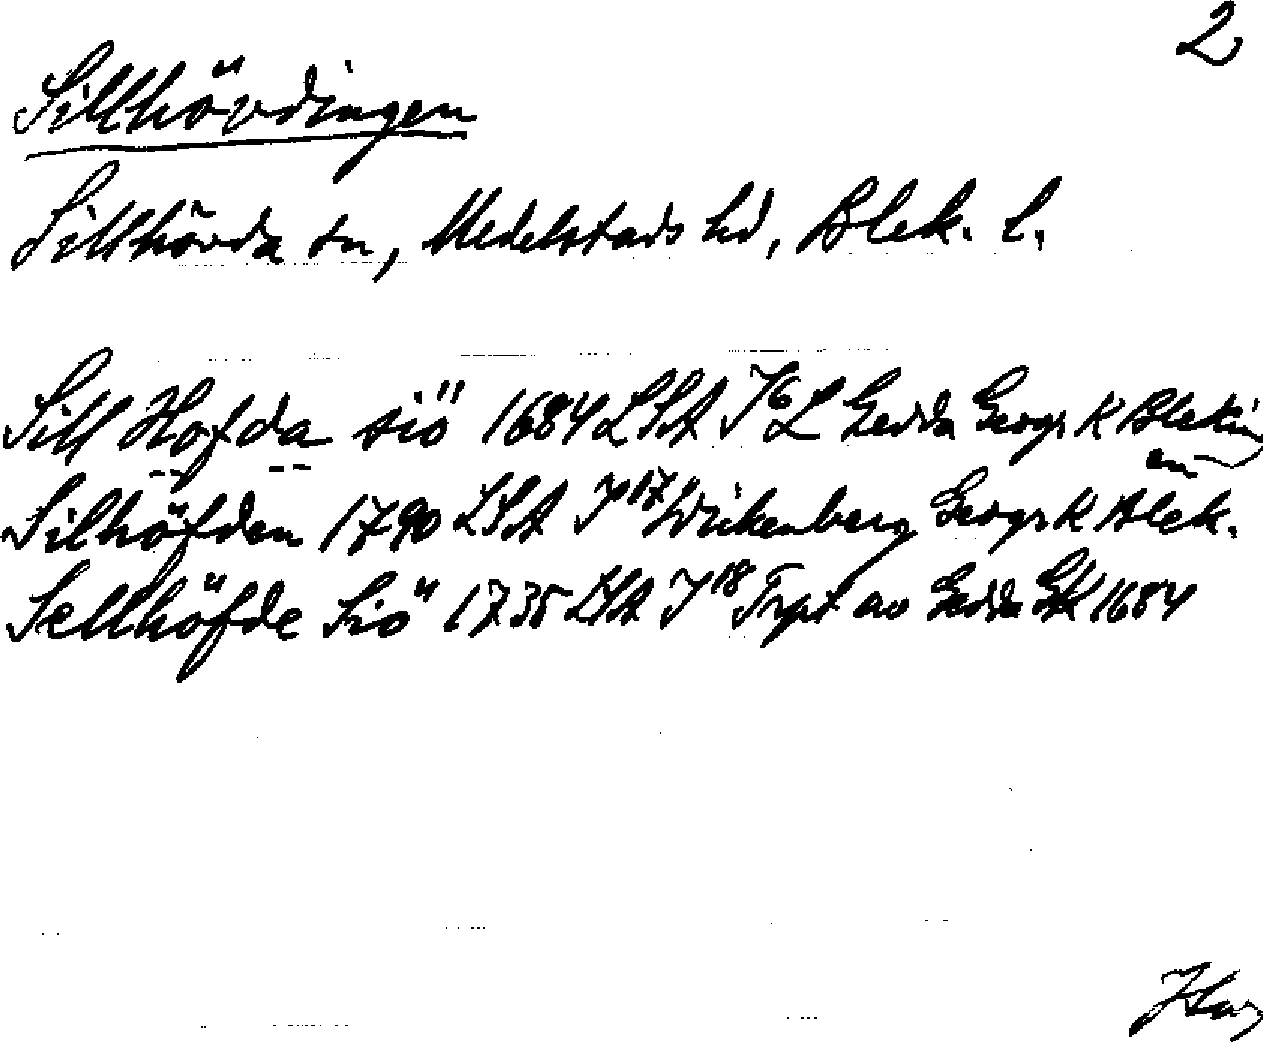 2
Sillhövdingen
Sillhövda sn, Medelstads hd, Blek. l.
Sill Hofda siö 1684 LSA J6 L Gedda Geogr K Blekin
en
Silhöfden 1790 LSA J17 Wickenberg Geogr K Blek.
Sellhöfde Siö 1735 LSA J18 Trpt av Gedda GK 1684